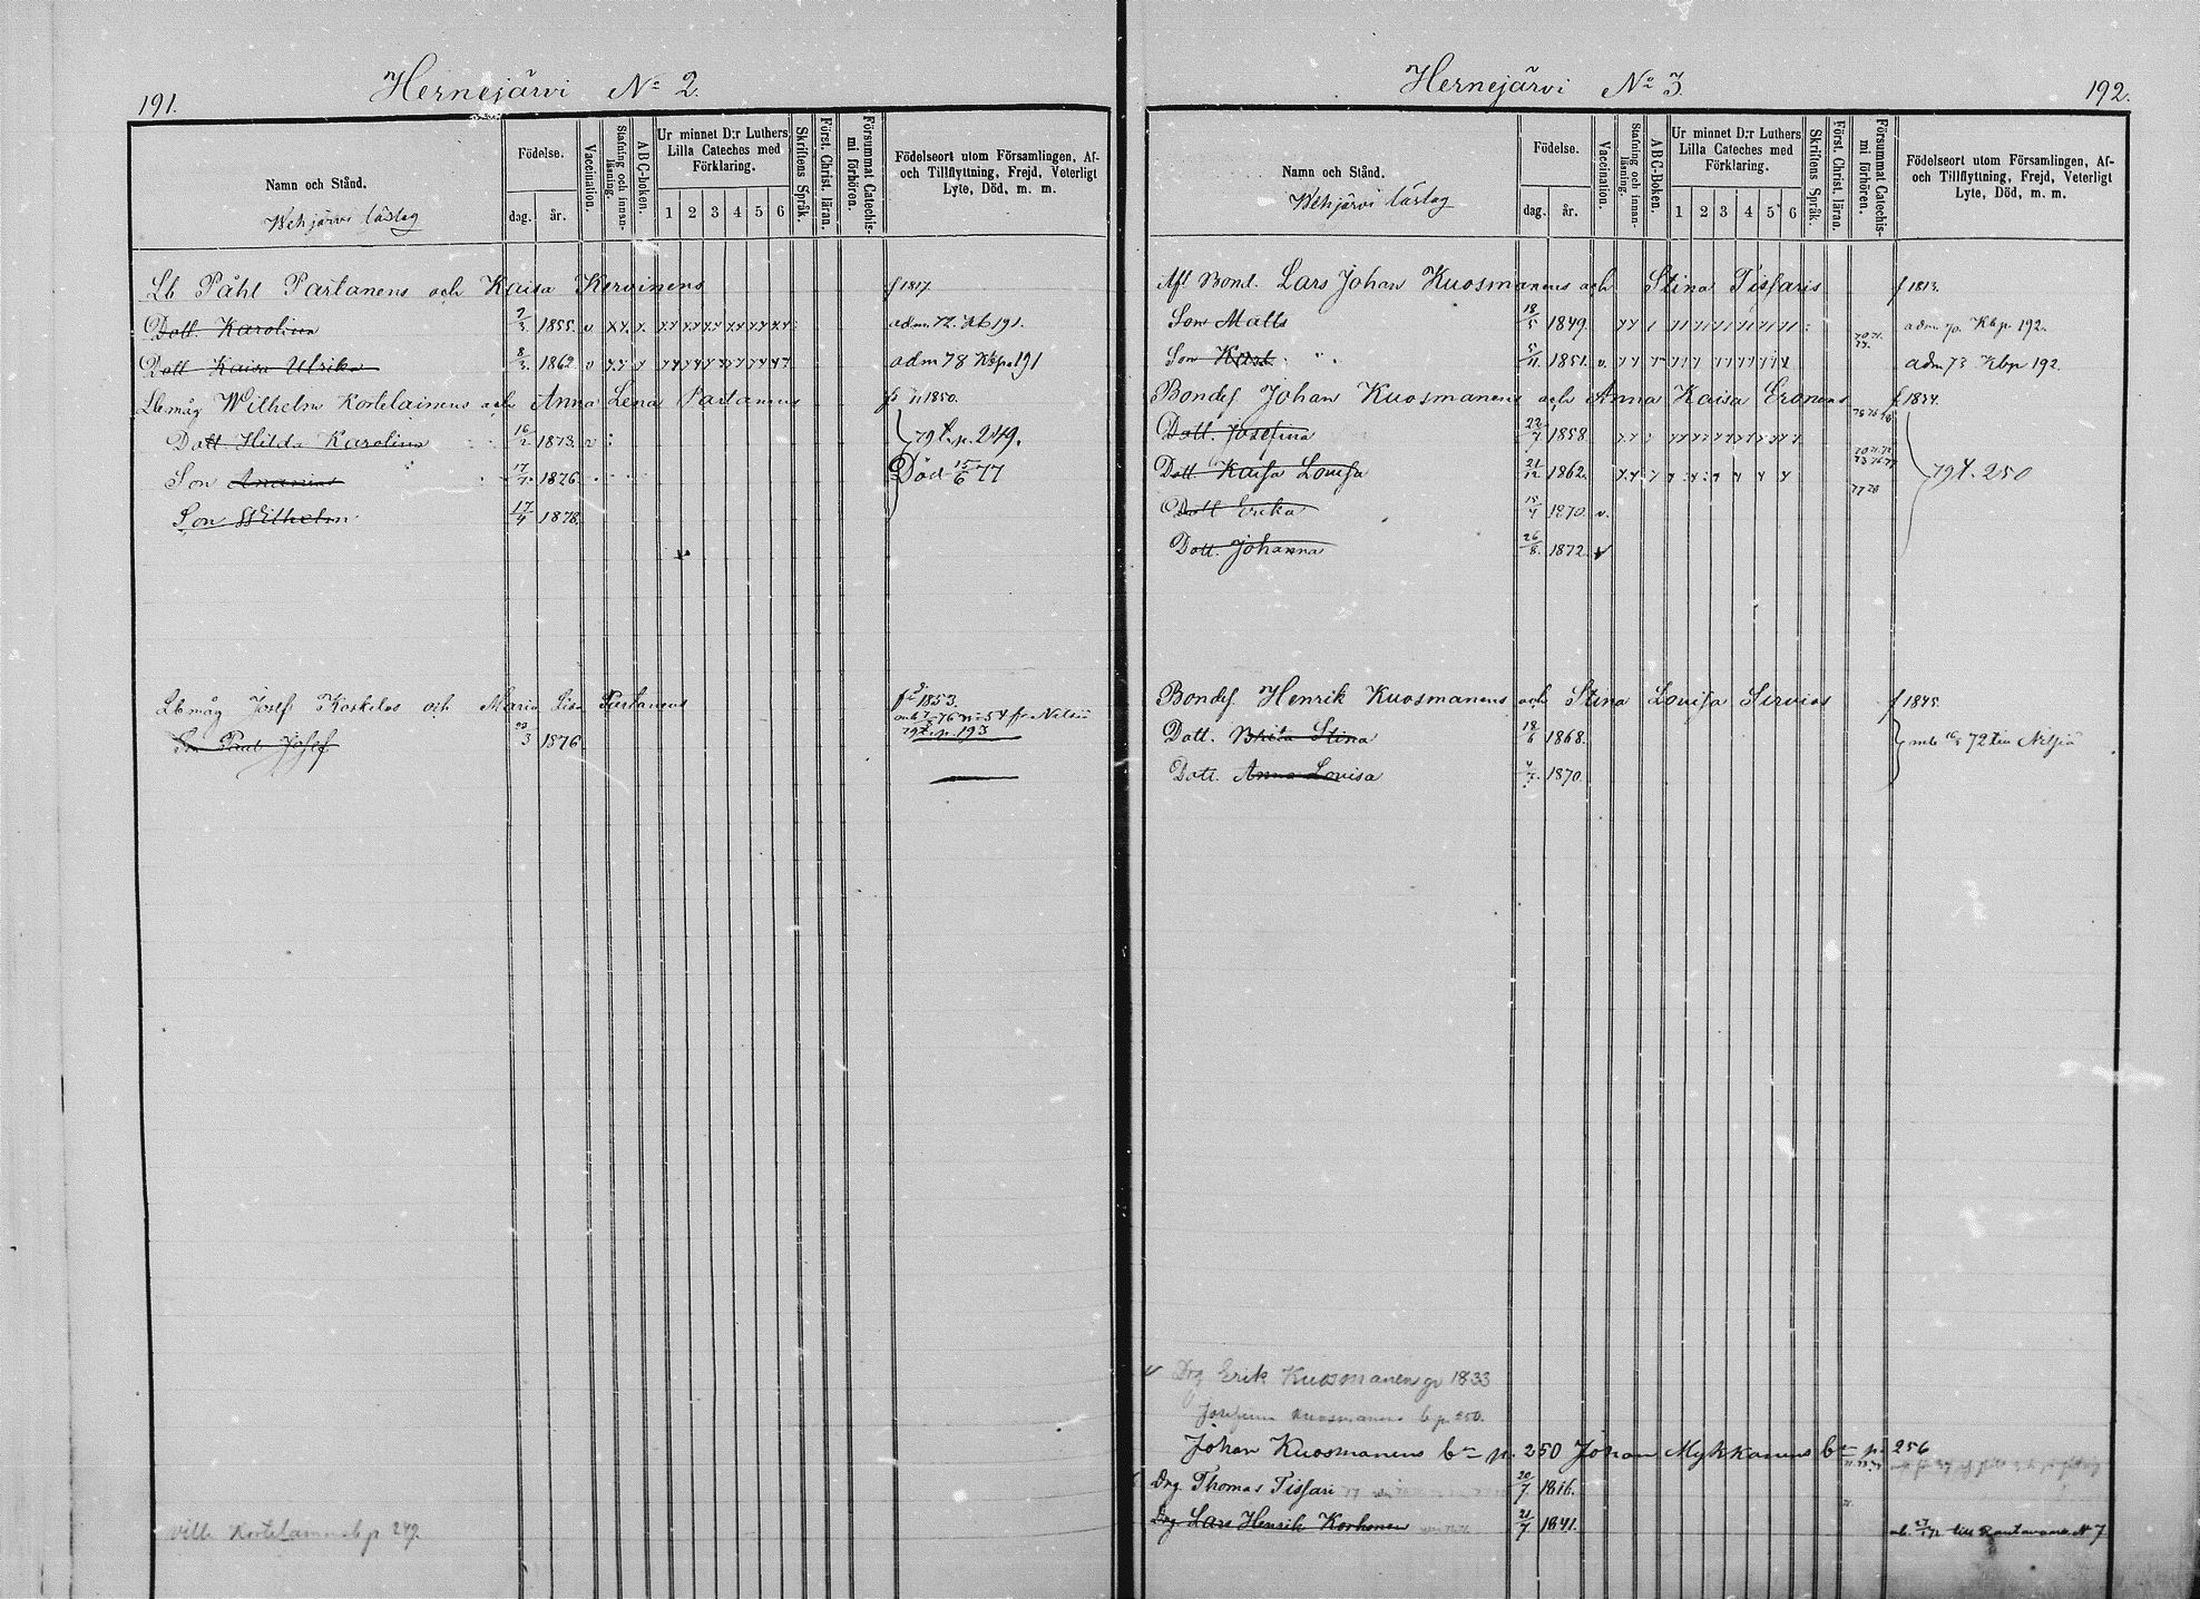 191.
Hernejärvi No 2.
Namn och Stånd.
Wehjärvi läslag
Födelse.
dag. år.
Vaccination.
Stafning och innan-läsning.
ABC-boken.
Ur minnet D:r Luthers Lilla Cateches med Förklaring.
1 2 3 4 5 6
Skriftens Språk.
Först. Christ. läran.
Försummat Catechis-mi förhören.
Födelseort utom Församlingen, Af-
och Tillflyttning, Frejd, Veterligt
Lyte, Död, m. m.
Lb Påhl Partanens och Kaisa Kervinens f 1817.
Dott. Karolina 7/3 1855. v adm. 72. Kb 191.
Dott Kaisa Ulrika 8/3. 1862 v adm 78 Kbp. 191
Lbmåg Wilhelm Kortelainens och Anna Lena Partanens 1850.
Dott. Hilda Karolina 16/2 1873. v 79 t. p. 249.
Son Ananias 17/7. 1876. Död 15/6 77
Son Wilhelm 17/4 1878.
Lbmåg Josef Koskelos och Maria Lisa Partanens f 1853.
76 54 fr Nilsiä
Son Paul Josef 23/3 1876 79 t. p. 193
Ville Kortelainen b p 249.
Hernejärvi No 3.
192.
Namn och Stånd.
Wehjärvi läslag
Födelse.
dag. år.
Vaccination.
Stafning och innan-läsning.
ABC-Boken.
Ur minnet D:r Luthers Lilla Cateches med Förklaring.
1 2 3 4 5 6
Skriftens Språk.
Först. Christ. läran.
Försummat Catechis-mi förhören.
Födelseort utom Församlingen, Af-
och Tillflyttning, Frejd, Veterligt
Lyte, Död, m. m.
Afl Bond. Lars Johan Kuosmanens och Stina Tissaris f 1813.
Son Matts 18/5 1849. adm 70. Kbp. 192.
Son 5/11. 1851. v. adm 73 Kbp 192.
Bondes Johan Kuosmanens och Anna Kaisa Eronens f 1834.
Dott. Josefina 22/7 1858
Dott Kaisa Lovisa 21/12 1862. 79 t. 250
Dott Erika 15/4 1870. v.
Dott. Johanna 26/8. 1872 v
Bondes. Henrik Kuosmanens och Stina Lovisa Sirviös f 1845.
Dott. Brita Stina 18/6 1868. 72 till Nilsiä
Dott. Anna Lovisa 4/7. 1870.
Drg Erik Kuosmanen 1833
Josefiina Kuosmanens b p 250.
Johan Kuosmanens bn p. 250 Johan Mykkänens bn p. 256
Drg Thomas Tissari 20/7 1816.
Drg Lars Henrik Korhonen 21/7 1841. till Rautavaara N 7